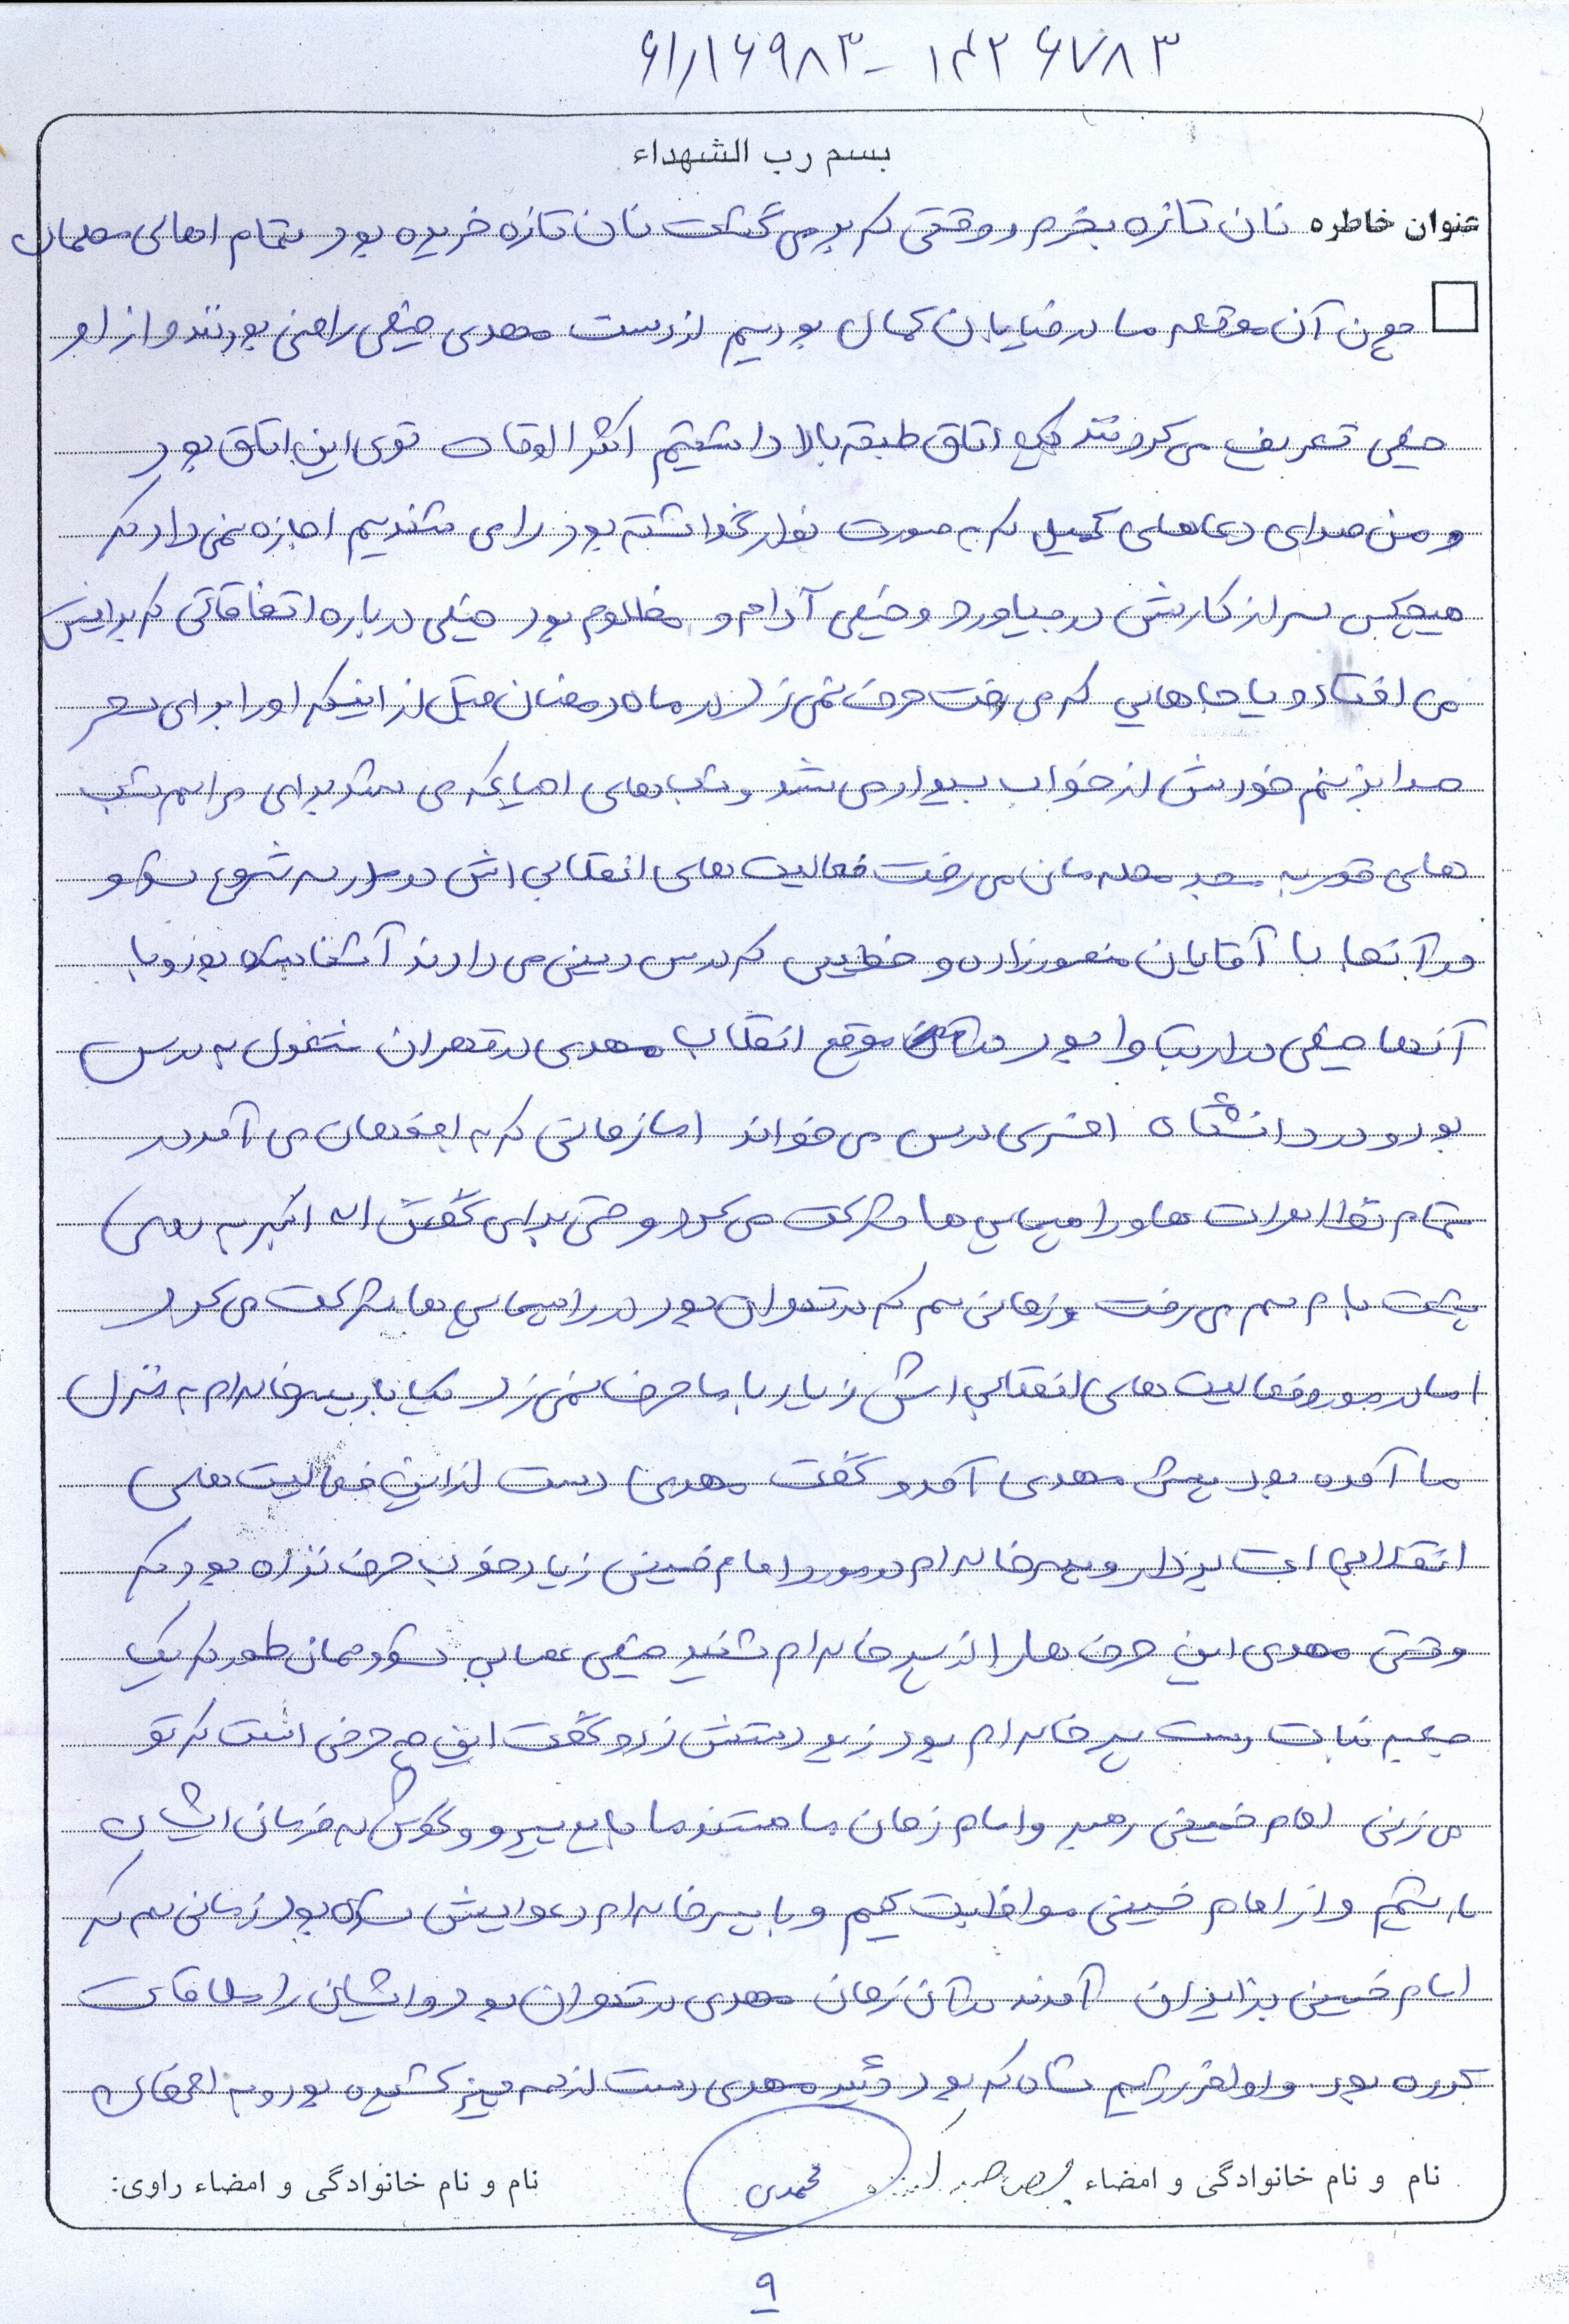 ۶۱/۱۶۹۸۳ - ۱۴۲۶۷۸۳
بسم رب الشهداء
عنوان خاطره نان تازه بخرم و وقتی که بر می گشت نان تازه خریده بود تمام اهالی محلمان
چون آن موقعه ما در خیابان کمال بودیم از دست مهدی خیلی راضی بودند و از او
خیلی تعریف می کردند یک اتاق طبقه بالا داشتیم اکثر الوقات توی این اتاق بود
و من صدای دعاهای کمیل که به صورت نوار گذاشته بود را می شنیدم اجازه نمی داد که
هیچکس سر از کارش در بیاورد و خیلی آرام و مظلوم بود خیلی درباره اتفاقاتی که برایش
می افتاد و یا جاهایی که می رفت حرف نمی زد در ماه رمضان قبل از اینکه او را برای سحر
صدا بزنم خودش از خواب بیدار می شد و شب های احیاء که می شد برای مراسم شب
های قدر به مسجد محله مان می رفت فعالیت های انقلابی اش در مدرسه شروع شد و
در آنجا با آقایان منصورزاده و خطیبی که درس دینی می دادند آشنا شده بود و با
آنها خیلی در ارتباط بود در آن موقع انقلاب مهدی در تهران مشغول به درس
بود و در دانشگاه افسری درس می خواند اما زمانی که به اصفهان می آمد در
تمام تظاهرات ها و راهپیمایی ها شرکت می کرد و حتی برای گفتن الله اکبر به روی
پشت بام هم می رفت و زمانی هم که در تهران بود در راهپیمایی ها شرکت می کرد
اما در مورد فعالیت های انقلابی اش زیاد با ما حرف نمی زد یک بار پسرخاله ام به منزل
ما آمده بود پیش مهدی آمد و گفت مهدی دست از این فعالیت های
انقلابی ات بردار و پسرخاله ام در مورد امام خمینی زیاد خوب حرف نزده بود که
وقتی مهدی این حرف ها را از پسرخاله ام شنید خیلی عصبانی شد و همان طور که یک
جعبه نبات دست پسرخاله ام بود زیر دستش زد و گفت این چه حرفی است که تو
می زنی امام خمینی رهبر و امام زمان ما هستند ما باید پیرو و گوش به فرمان ایشان
باشیم و از امام خمینی مواظبت کنیم و با پسرخاله ام دعوایش شده بود زمانی هم که
امام خمینی به ایران آمدند در آن زمان مهدی در تهران بود و ایشان را ملاقات
کرده بود و اواخر رژیم شاه که بود دیگر مهدی دست از همه چیز کشیده بود و به اصفهان
نام و نام خانوادگی و امضاء
محمدی
نام و نام خانوادگی و امضاء راوی:
۹